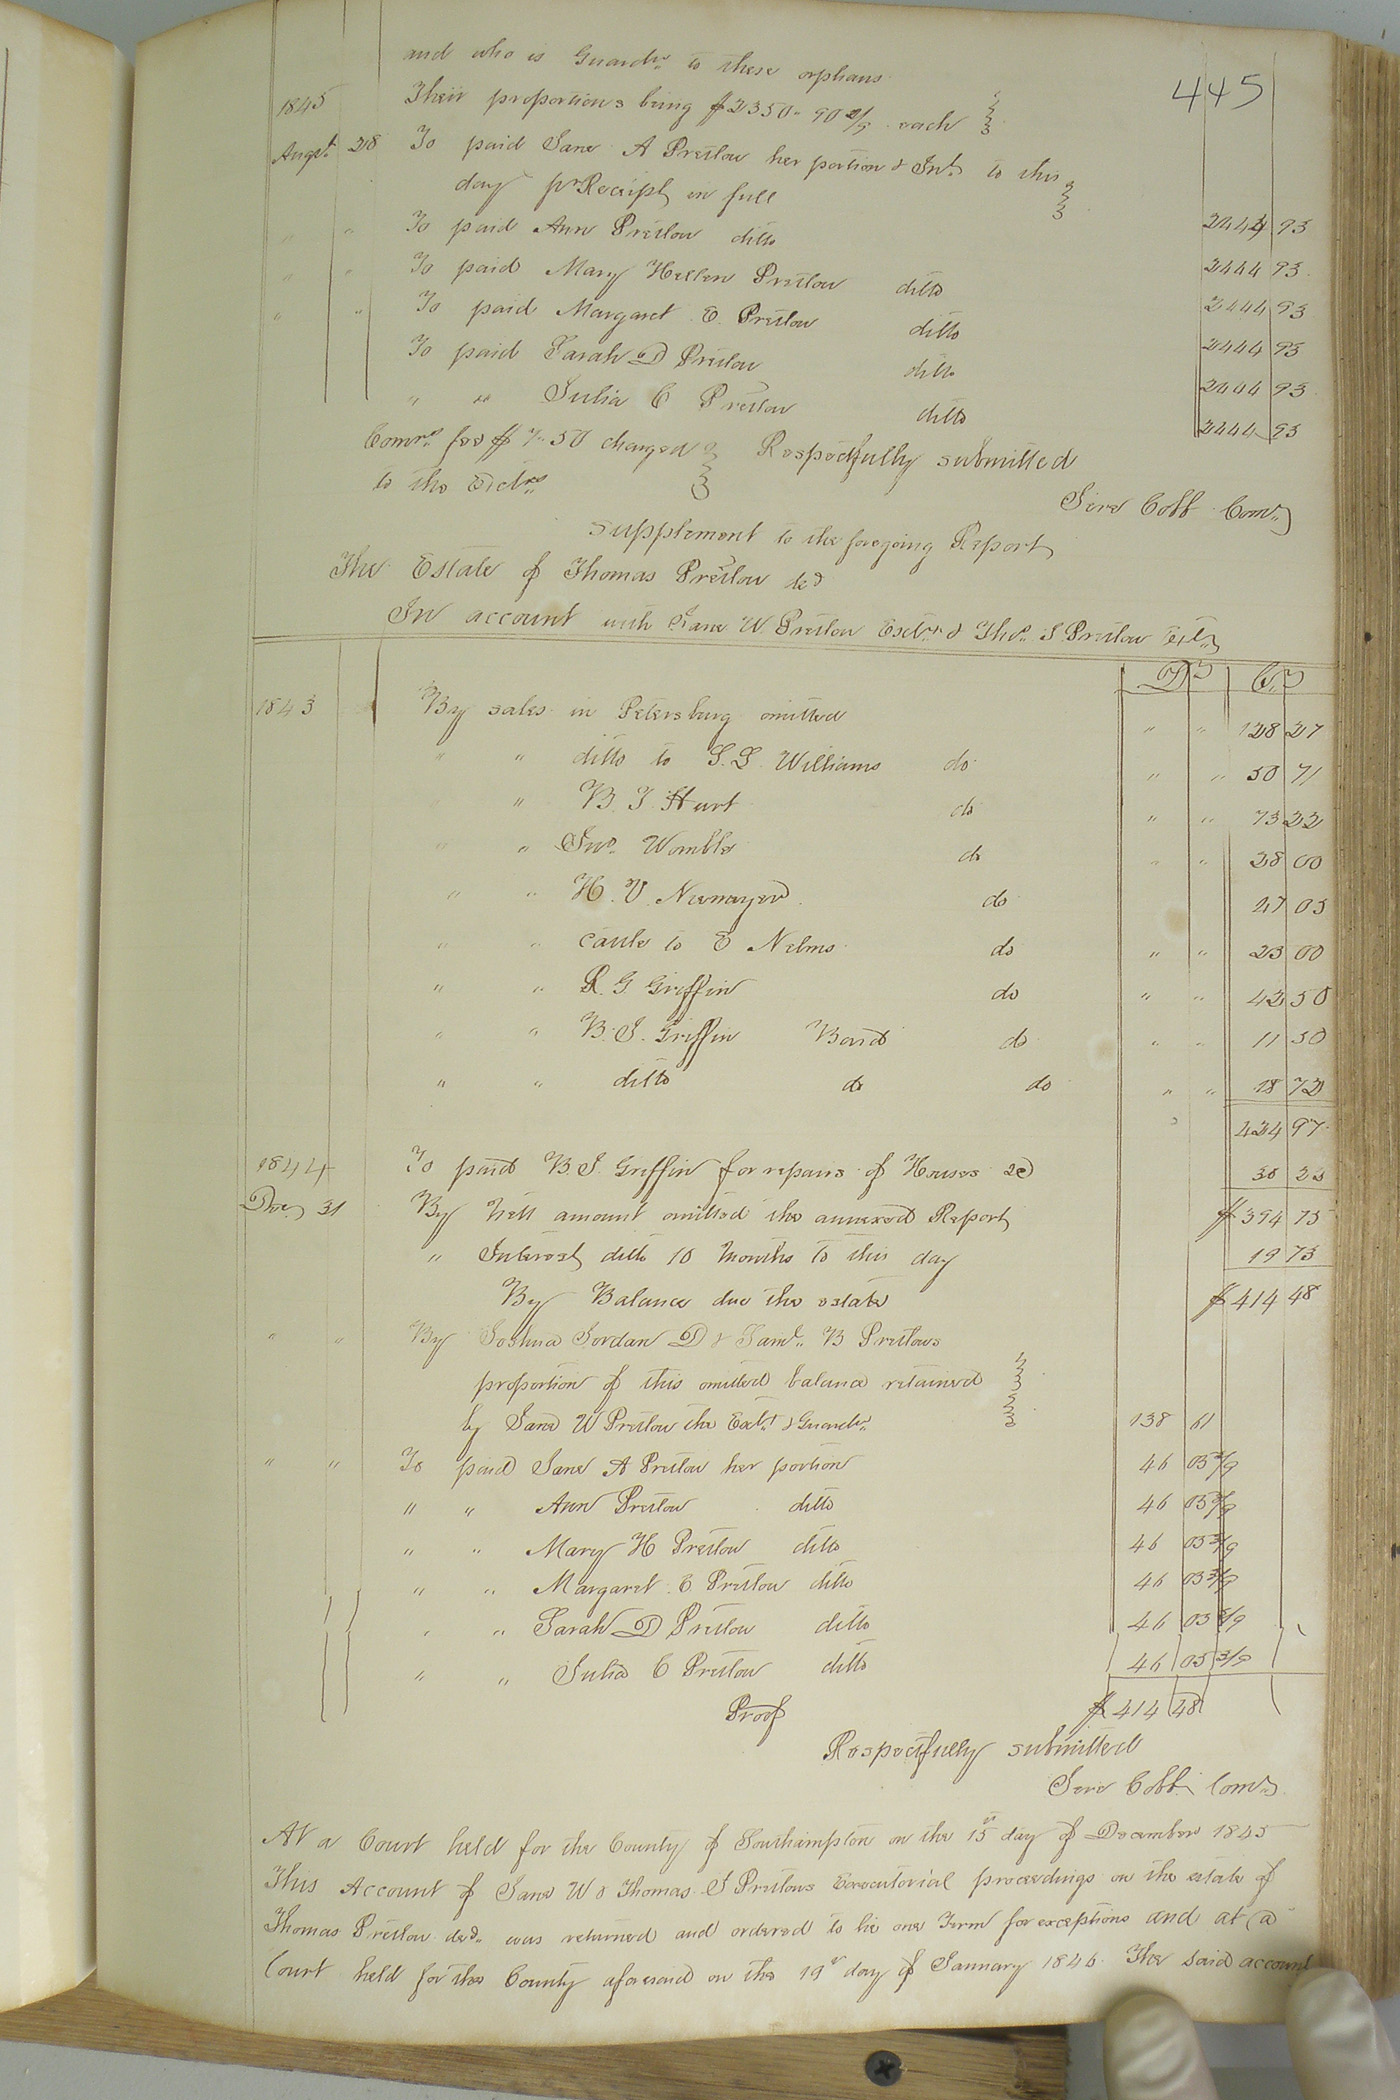 445
and who is Guardn to these orphans
1845 Their proportions being $2350.90 2/9 each
Augst 28 To paid Jane A Pretlow her portion & Int. to this
day pr Receipt in full 2444 93
" " To paid Ann Pretlow ditto 2444 93
" " To paid Mary Hellen Pretlow ditto 2444 93
" " To paid Margaret E. Pretlow ditto 2444 93
To paid Sarah D Pretlow ditto 2444 93
" " Julia C Pretlow ditto 2444 93
Comrs fee $7.50 charged Respectfully submitted
to the Extrs
Jere Cobb Comr
Supplement to the foregoing Report
The Estate of Thomas Pretlow decd
In account with Jane W Pretlow Extrx & Thos. S Pretlow Extr
Dr Cr
1843 By sales in Petersburg omitted " " 128 27
" " ditto to S. S. Williams do " " 50 71
" B. T. Hart do " " 73 22
" " Jno. Womble do " " 28 00
" " H. V. Niemayer do 47 05
" " cattle to E Nelms do " " 23 00
" " R. G Griffin do " " 42 50
" " B. S. Griffin Bond do " " 11 50
" " ditto do do " " 18 72
424 97
1844 To paid B. S. Griffin for repairs of Houses &c 30 23
Decr 31 By Nett amount omitted the annexed Report $394 75
" Interest ditto 10 Months to this day 19 73
By Balance due the estate $414 48
" " By Joshua Jordan D & Saml. B Pretlows
proportion of this omitted balance retained
by Jane W Pretlow the Extx & Guardn. 138 61
" " To paid Jane A Pretlow her portion 46 05 3/9
" " Ann Pretlow ditto 46 05 3/9
" " Mary H Pretlow ditto 46 05 3/9
" " Margaret E Pretlow ditto 46 05 3/9
" " Sarah D Pretlow ditto 46 05 3/9
" " Julia C Pretlow ditto 46 05 3/9
Proof $414 48
Respectfully submitted
Jere Cobb Comr
At a Court held for the County of Southampton on the 15th day of December 1845
This Account of Jane W & Thomas S Pretlows Executorial proceedings on the estate of
Thomas Pretlow decd. was returned and ordered to lie one Term for exceptions and at a
Court held for the County aforesaid on the 19th day of January 1846 The said account